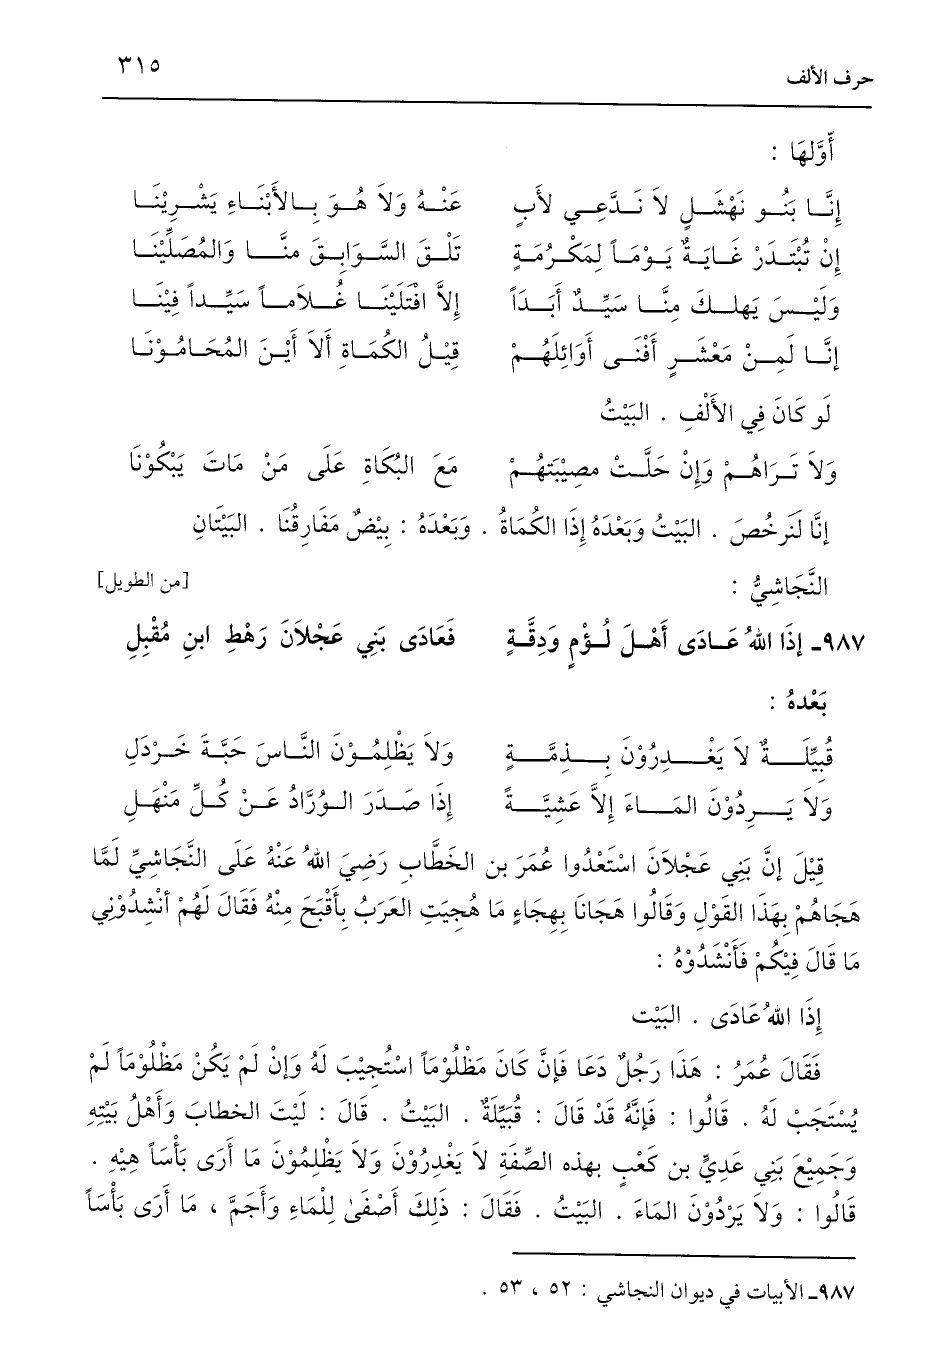 حرف الألف ٣١٥
أَوَّلهَا :
إِنَّا بَنُو نَهْشَلٍ لاَ نَدَّعِي لأَبٍ عَنْهُ وَلاَ هُوَ بِالأَبْنَاءِ يَشْرِيْنَا
إِنْ تُبْتَدَرْ غَايَةٌ يَوْمَاً لِمَكْرُمَةٍ تَلْقَ السَّوَابِقَ مِنَّا وَالمُصَلِّيْنَا
وَلَيْسَ يَهلِكَ مِنَّا سَيِّدٌ أَبَدَاً إِلاَّ افْتَلَيْنَا غُلاَمَاً سَيِّداً فِيْنَا
إِنَّا لَمِنْ مَعْشَرٍ أَفْنَى أَوَائِلَهُمْ قِيْلُ الكُمَاةِ أَلاَ أَيْنَ المُحَامُوْنَا
لَو كَانَ فِي الأَلْفِ . البَيْتُ
وَلاَ تَرَاهُمْ وَإِنْ حَلَّتْ مصِيْبَتهُمْ مَعَ البُكَاةِ عَلَى مَنْ مَاتَ يَبْكُوْنَا
إِنَّا لَنَرخُصَ . البَيْتُ وَبَعْدَهُ إِذَا الكُمَاةُ . وَبَعْدَهُ : بِيْضٌ مَفَارِقُنَا . البَيْتَانِ
النَّجَاشِيُّ : [من الطويل]
٩٨٧ـ إِذَا اللهُ عَادَى أَهْلَ لُؤْمٍ وَدِقَّةٍ فَعَادَى بَنِي عَجْلاَنَ رَهْطِ ابنِ مُقْبِلِ
بَعْدهُ :
قُبيِّلَةٌ لاَ يَغْدِرُوْنَ بِذِمَّةٍ وَلاَ يَظْلِمُوْنَ النَّاسَ حَبَّةَ خَرْدَلِ
وَلاَ يَرِدُوْنَ المَاءَ إِلاَّ عَشِيَّةً إِذَا صَدَرَ الوُرَّادُ عَنْ كُلِّ مَنْهَلِ
قِيْلَ إِنَّ بَنِي عَجْلاَنَ اسْتَعْدُوا عُمَرَ بن الخَطَّابِ رَضِيَ اللهُ عَنْهُ عَلَى النَّجَاشِيِّ لَمَّا
هَجَاهُمْ بِهَذَا القَوْلِ وَقَالُوا هَجَانَا بِهِجَاءٍ مَا هُجِيَتِ العَرَبُ بِأَقْبَحَ مِنْهُ فَقَالَ لَهُمْ أَنْشِدُوْنِي
مَا قَالَ فِيْكُمْ فَأَنْشَدُوْهُ :
إِذَا اللهُ عَادَى . البَيْت
فَقَالَ عُمَرُ : هَذَا رَجُلٌ دَعَا فَإِنَّ كَانَ مَظْلُوْمَاً اسْتُجِيْبَ لَهُ وَإِنْ لَمْ يَكُنْ مَظْلُوْمَاً لَمْ
يُسْتَجَبْ لَهُ . قَالُوا : فَإِنَّهُ قَدْ قَالَ : قُبَيِّلَةٌ . البَيْتُ . قَالَ : لَيْتَ الخطابَ وَأَهْلُ بَيْتِهِ
وَجَمِيْعَ بَنِي عَدِيِّ بن كَعْبٍ بهذه الصِّفَةِ لاَ يَغْدِرُوْنَ وَلاَ يَظْلِمُوْنَ مَا أَرَى بَأْسَاً هِيْهِ .
قَالُوا : وَلاَ يَرْدُوْنَ المَاءَ . البَيْتُ . فَقَالَ : ذَلِكَ أَصْفَىٰ لِلْمَاءِ وَأَجَمَّ ، مَا أَرَى بَأْسَاً
٩٨٧ـ الأبيات في ديوان النجاشي : ٥٢ ، ٥٣ .